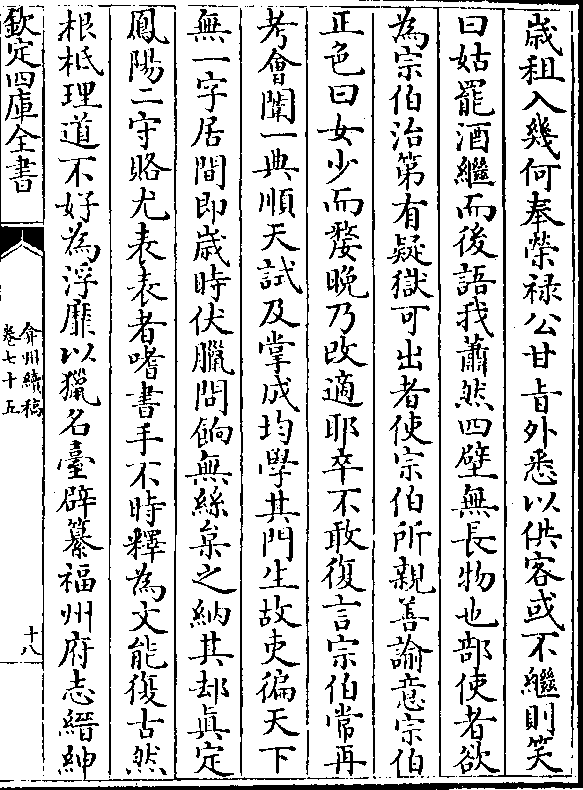 歳租入幾何奉榮禄公甘㫖外悉以供客或不繼則笑
曰姑罷酒繼而後語我蕭然四壁無長物也部使者欲
為宗伯治第有疑獄可出者使宗伯所親善諭意宗伯
正色曰女少而嫠晩乃改適耶卒不敢復言宗伯常再
考會闈一典順天試及掌成均學其門生故吏徧天下
無一字居間即歳時伏臘問餉無絲枲之納其却真定
鳳陽二守賂尤表表者嗜書手不時釋為文能復古然
根柢理道不好為浮靡以獵名臺辟纂福州府志縉紳
欽定四庫全書
弇州續稿
卷七十五
十八